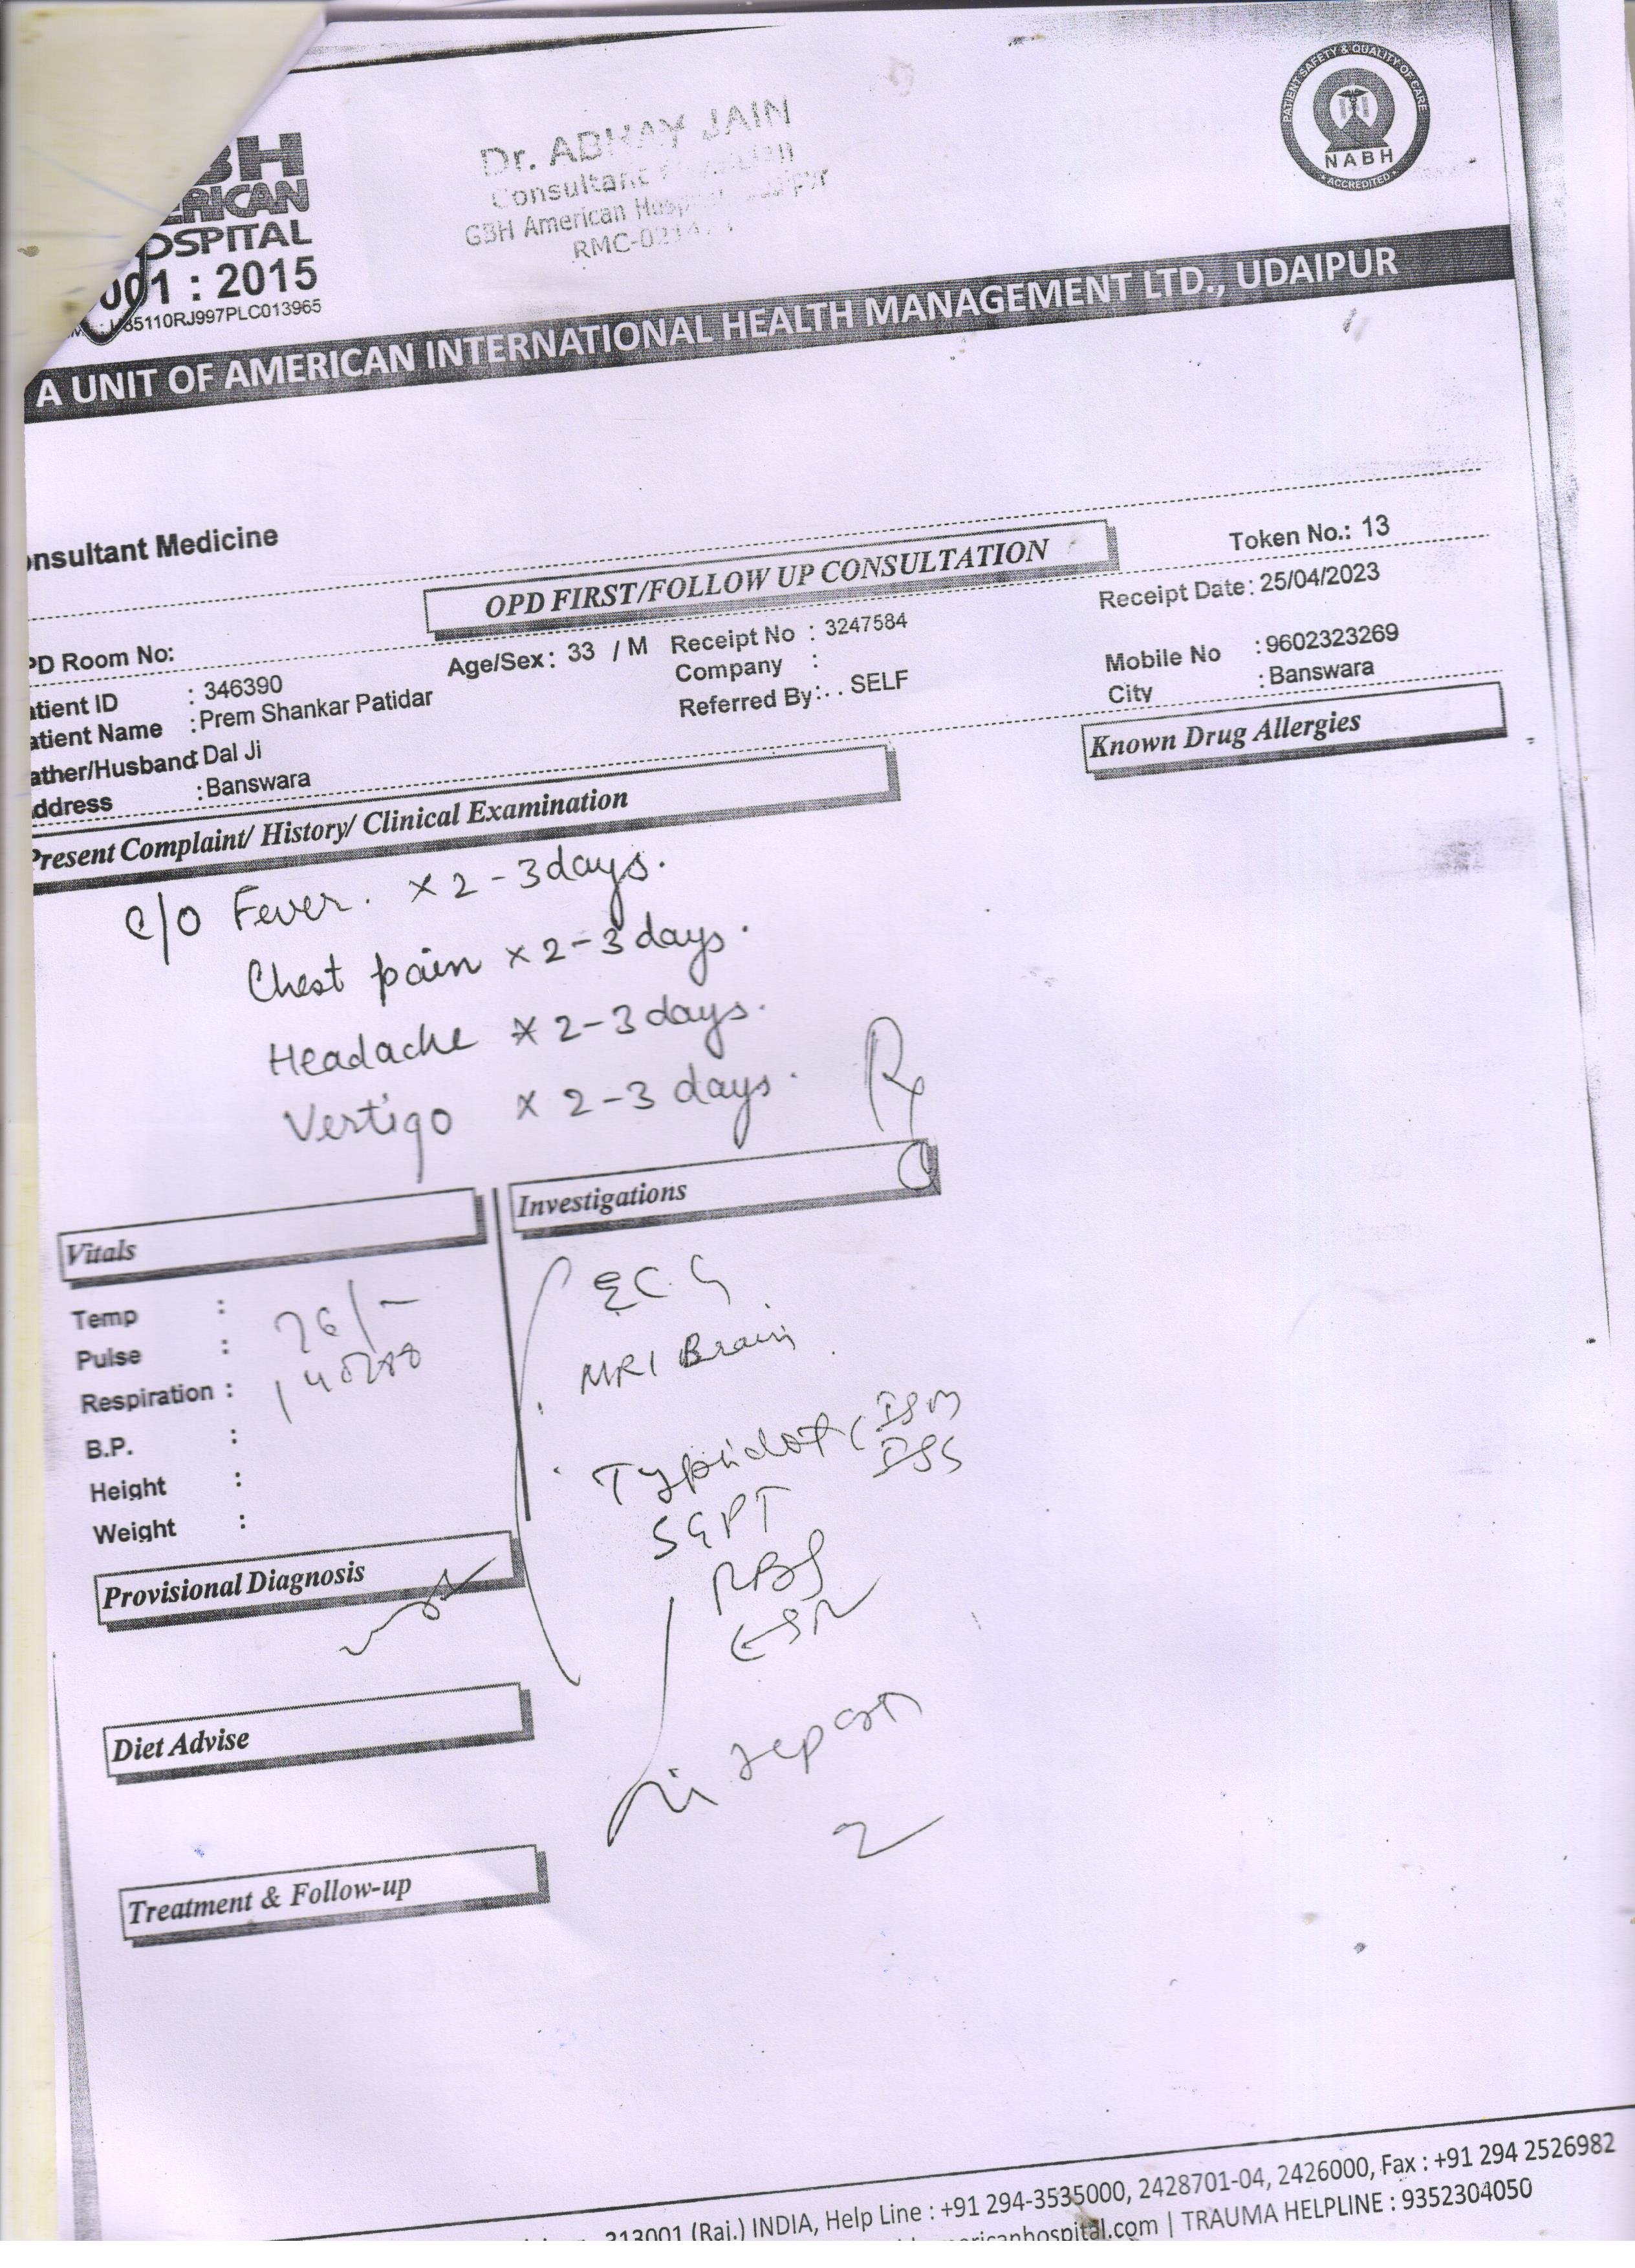 BH
ERICAN
OSPITAL
001 : 2015
85110RJ997PLC013965
Dr. ABHAY JAIN
Consultant
GBH American
RMC-
PATIENT SAFETY & QUALITY OF CARE
NABH
ACCREDITED
A UNIT OF AMERICAN INTERNATIONAL HEALTH MANAGEMENT LTD., UDAIPUR
onsultant Medicine
Token No.: 13
OPD FIRST/FOLLOW UP CONSULTATION
PD Room No:
Age/Sex: 33 / M
Receipt No : 3247584
Receipt Date: 25/04/2023
atient ID : 346390
Company :
Mobile No : 9602323269
atient Name : Prem Shankar Patidar
Referred By: . . SELF
City : Banswara
ather/Husband: Dal Ji
ddress : Banswara
Known Drug Allergies
Present Complaint/ History/ Clinical Examination
C/O Fever. x 2-3 days.
Chest pain x 2-3 days.
Headache x 2-3 days.
Vertigo x 2-3 days.
Rx
Vitals
Investigations
Temp :
Pulse : 76/-
Respiration :
B.P. :
Height :
Weight :
ECG
MRI Brain
Typhidot
SGPT
RBS
ESR
Provisional Diagnosis
report
Diet Advise
Treatment & Follow-up
313001 (Raj.) INDIA, Help Line : +91 294-3535000, 2428701-04, 2426000, Fax : +91 294 2526982
americanhospital.com | TRAUMA HELPLINE : 9352304050